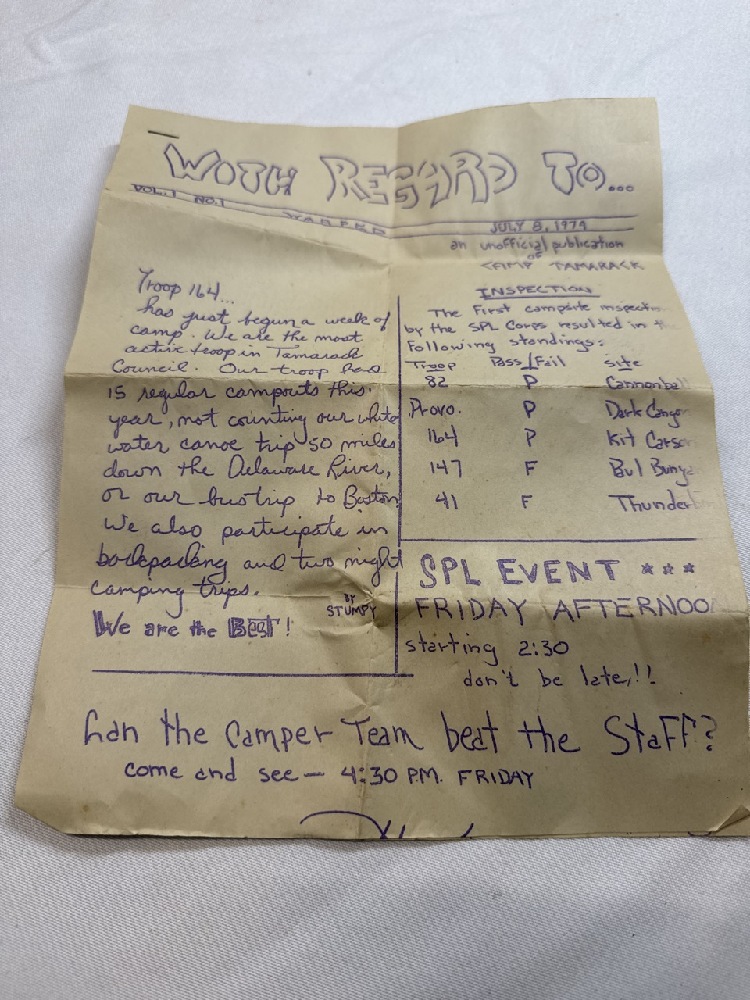 WOTH REGARD TO...
VOL.1 NO.1
JULY 8, 1979
an unofficial publication
OF
CAMP TAMARACK
Troop 164...
has just begun a week of
camp. We are the most
active troop in Tamarack
Council. Our troop had
15 regular campouts this
year, not counting our white
water canoe trip 50 miles
down the Delaware River,
or our bus trip to Boston
We also participate in
backpacking and two night
camping trips.
BY
STUMPY
We are the BEST!
INSPECTION
The first campsite inspectn
by the SPL Corps resulted in t
following standings:
Troop Pass/Fail site
82 P Cannonball
Provo. P Dark Canyon
164 P Kit Carson
147 F Bul Bunya
41 F Thunder
SPL EVENT ***
FRIDAY AFTERNOO
starting 2:30
don't be late,!!
Can the Camper Team beat the Staff?
come and see — 4:30 PM. FRIDAY